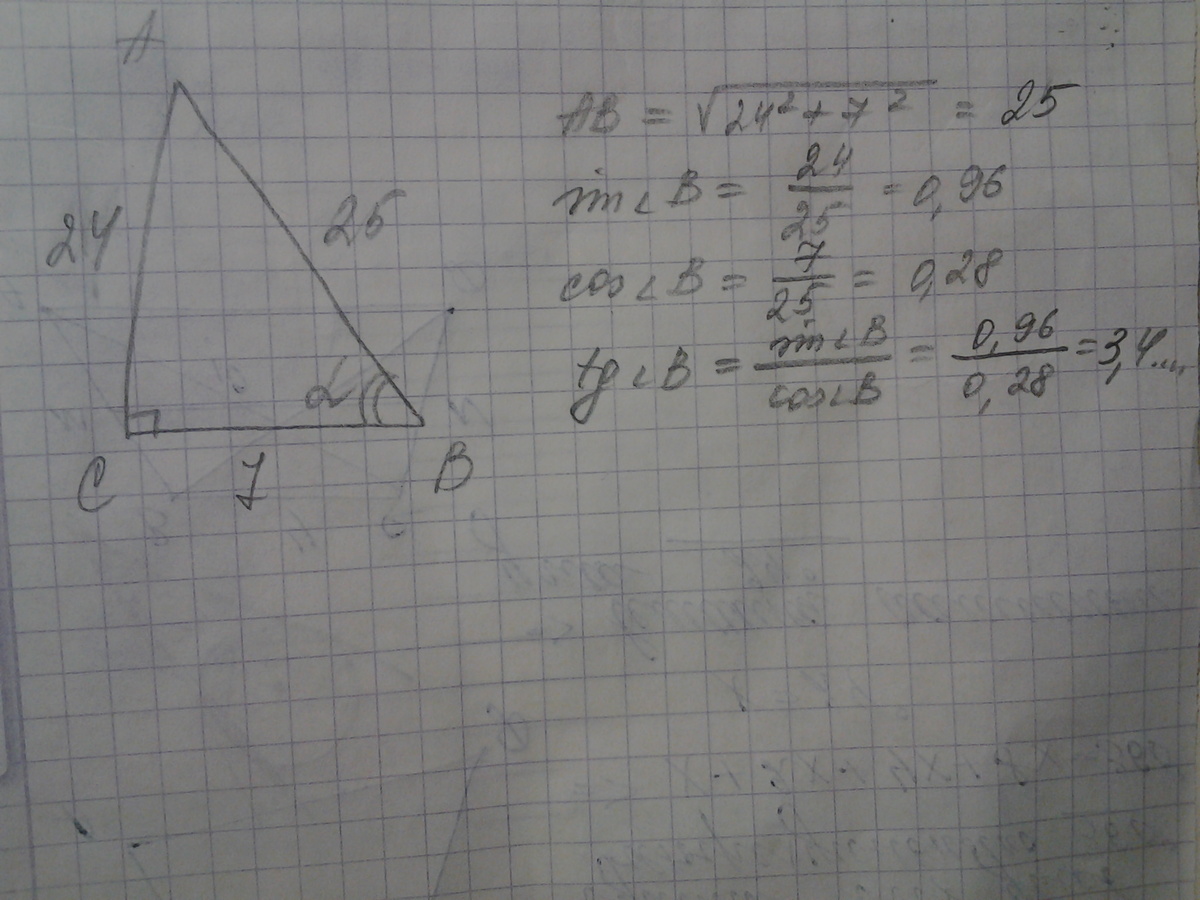 A
24
25
α
C
7
B
AB = √24² + 7² = 25
sin∠B = 24/25 = 0,96
cos∠B = 7/25 = 0,28
tg∠B = sin∠B/cos∠B = 0,96/0,28 = 3,4....